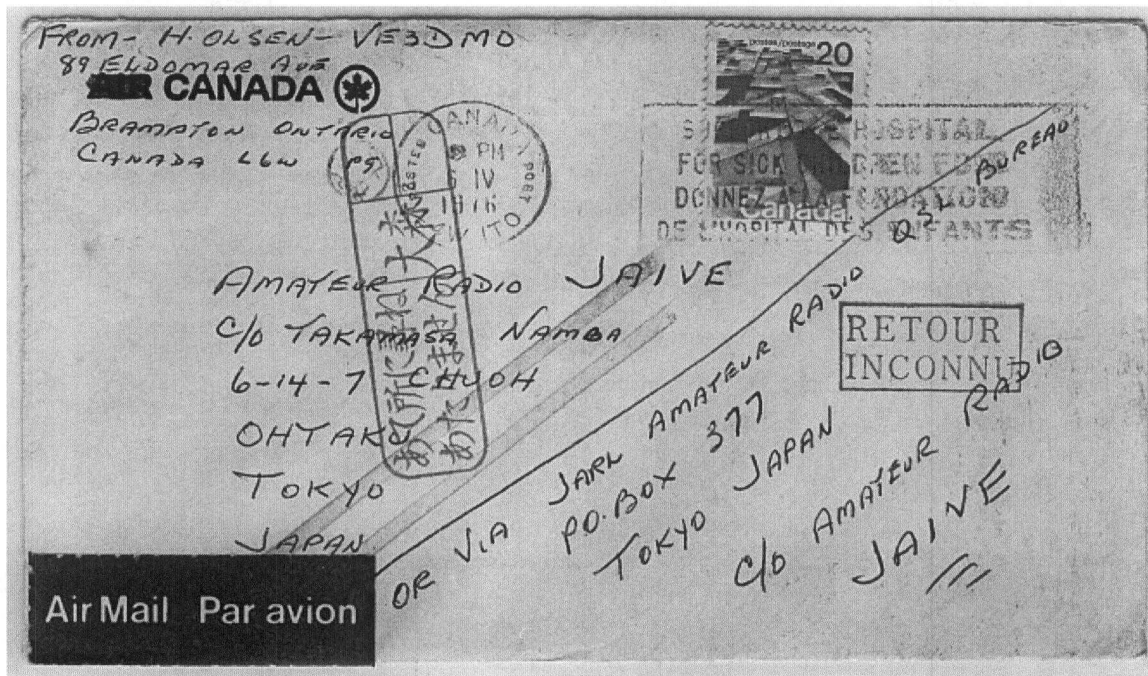 FROM- H. OLSEN- VE3DMO
89 ELDOMAR AVE
AIR CANADA
BRAMPTON ONTARIO
CANADA L6W
CANADA
PM
IV
1976
POST
postes/postage 20
Canada
HOSPITAL
FOR SICK CHILDREN FUND
DONNEZ A LA FONDATION
DE L'HOPITAL DES ENFANTS
AMATEUR RADIO JA1VE
C/O TAKAMASA NAMBA
6-14-7 CHUOH
OHTAKU
TOKYO
JAPAN
あて所に尋ね
あたりません
大森
RETOUR
INCONNU
OR VIA JARL AMATEUR RADIO QSL BUREAU
P.O. BOX 377
TOKYO JAPAN
C/O AMATEUR RADIO
JA1VE
Air Mail Par avion